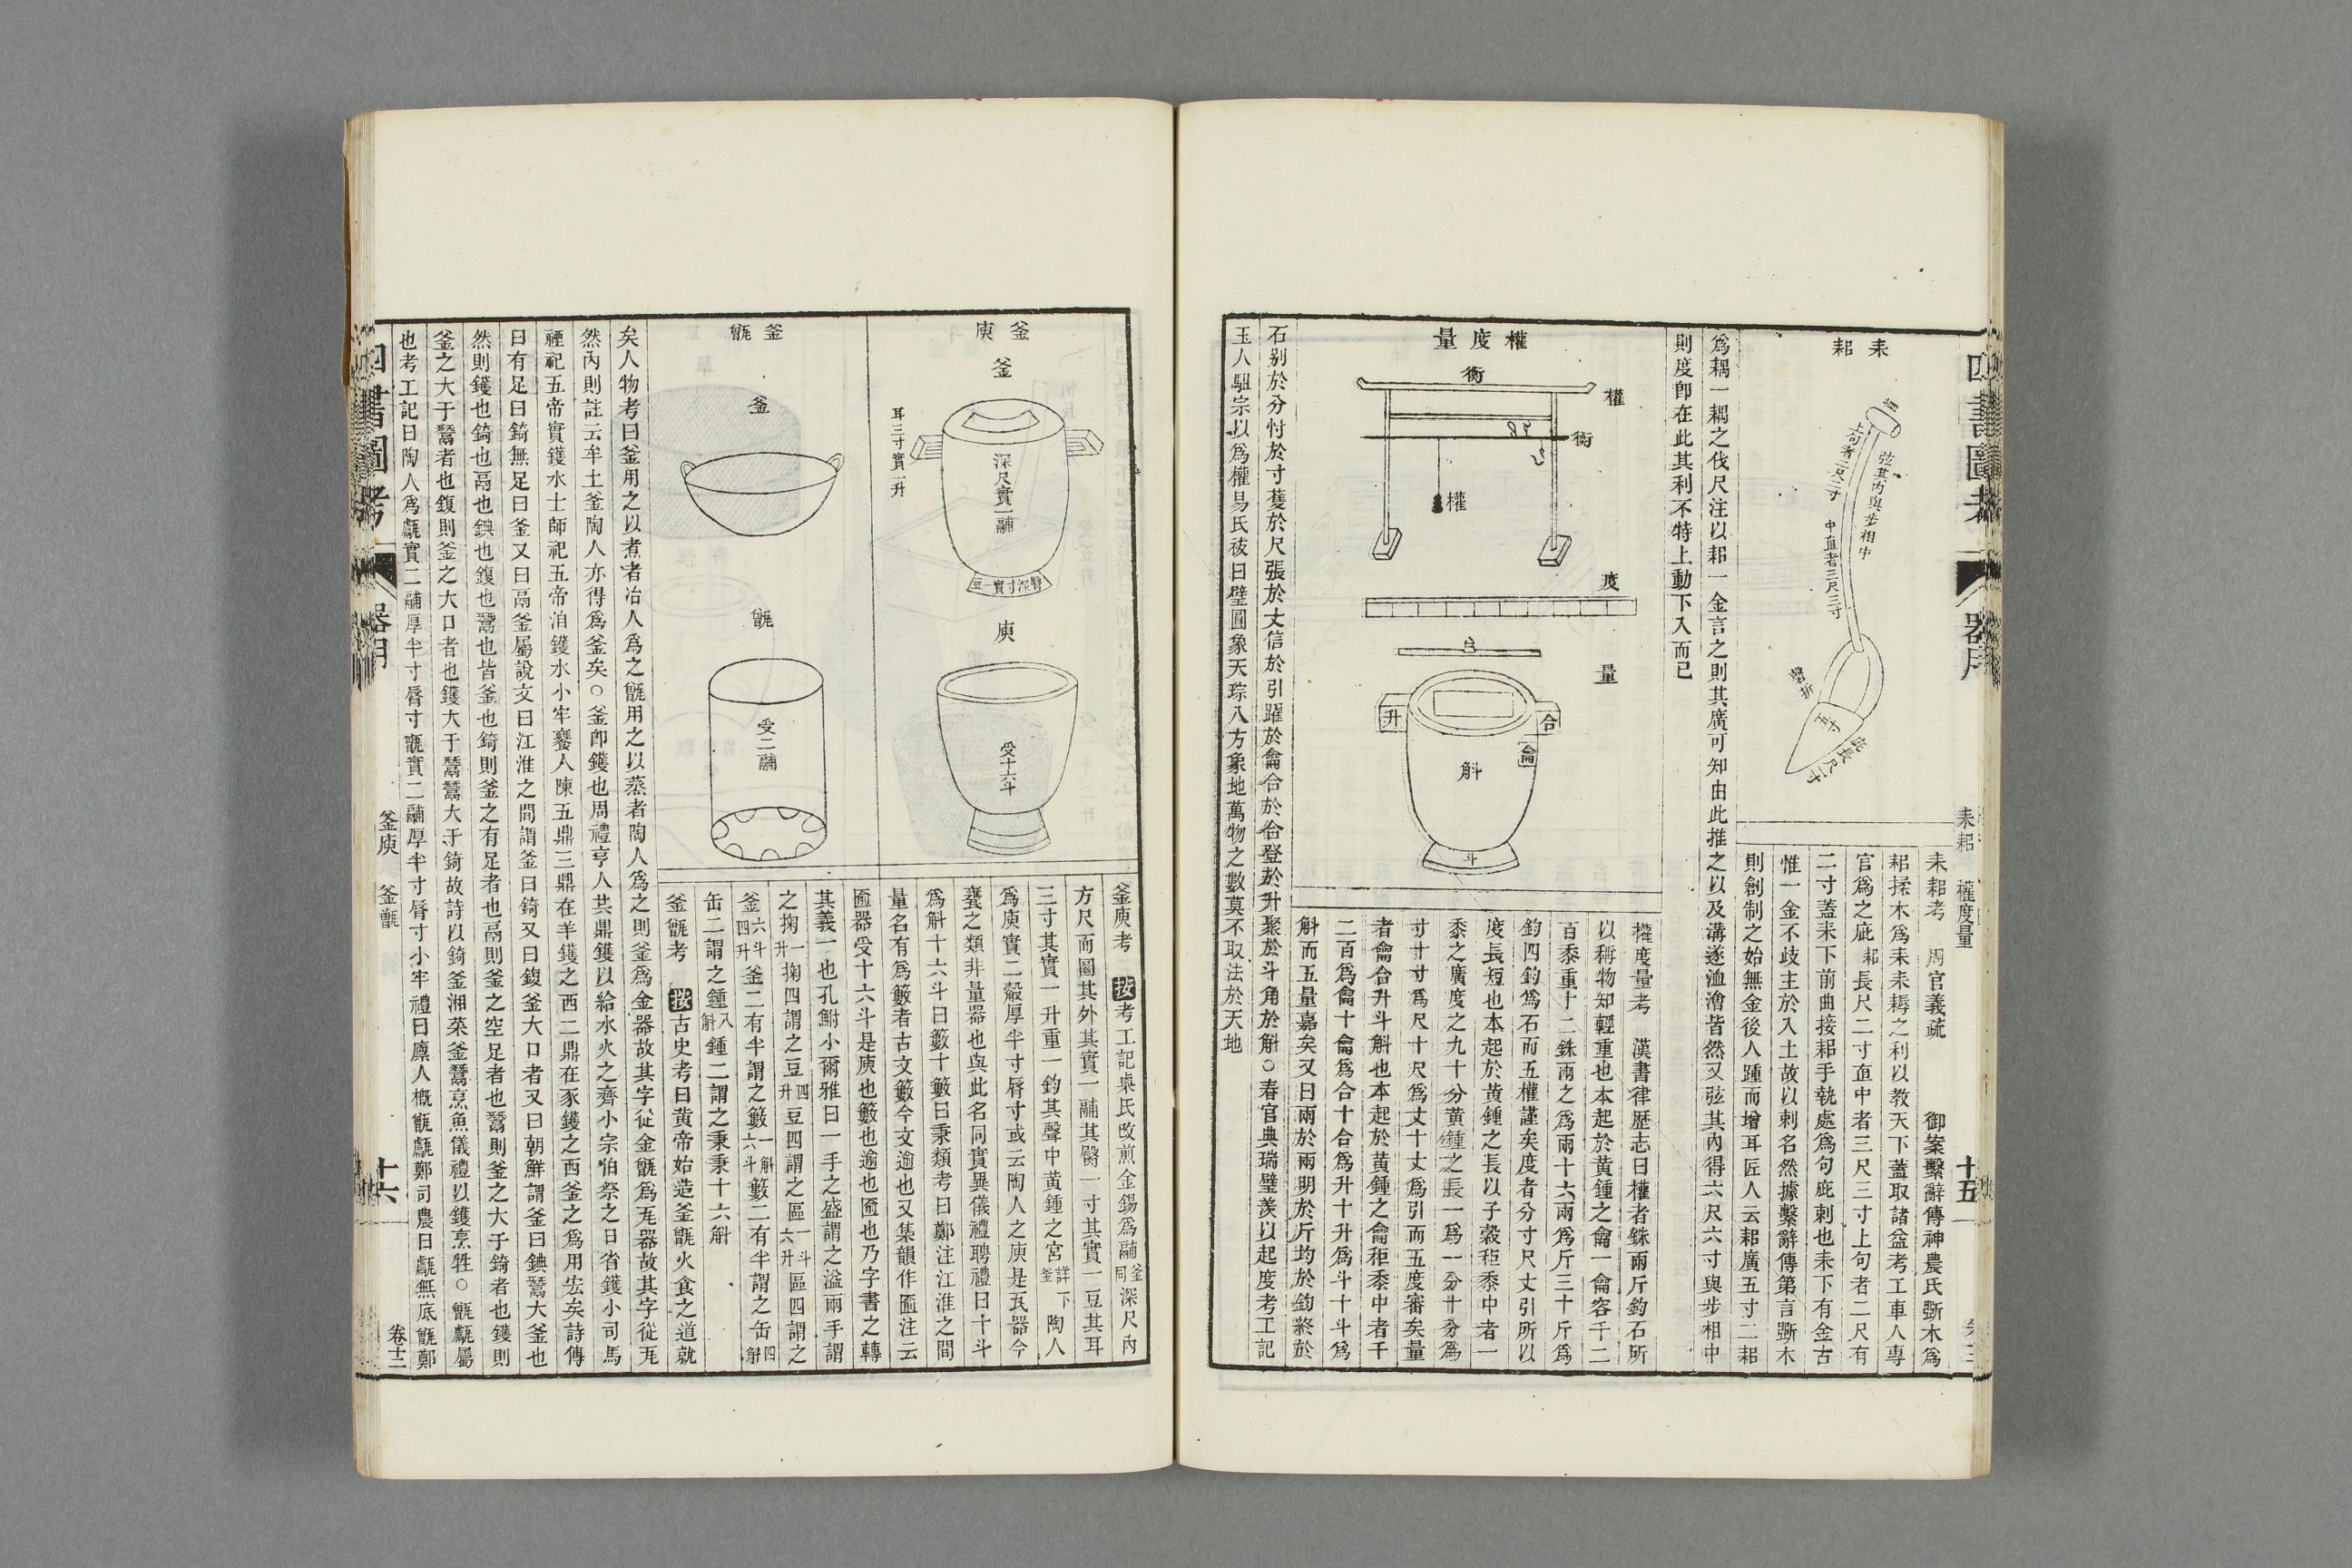 四書圖考
器用
耒耜
權度量
十五
耒耜
首
上句者二尺二寸
弦其內與步相中
中直者三尺三寸
磬折
五寸
庛長尺寸
耒耜考 周官義疏 御案繫辭傳神農氏斲木爲
耜揉木爲耒耒耨之利以教天下蓋取諸益考工車人專
官爲之庛耜長尺二寸直中者三尺三寸上句者二尺有
二寸蓋耒下前曲接耜手執處爲句庛剌也耒下有金古
惟一金不歧主於入土故以剌名然據繫辭傳第言斲木
則創制之始無金後人踵而增耳匠人云耜廣五寸二耜
爲耦一耦之伐尺注以耜一金言之則其廣可知由此推之以及溝遂洫澮皆然又弦其內得六尺六寸與步相中
則度卽在此其利不特上動下入而已
權度量
衡
權
衡
權
度
量
升
合
龠
斛
斗
權度量考 漢書律歷志曰權者銖兩斤鈞石所
以稱物知輕重也本起於黃鍾之龠一龠容千二
百黍重十二銖兩之爲兩十六兩爲斤三十斤爲
鈞四鈞爲石而五權謹矣度者分寸尺丈引所以
度長短也本起於黃鍾之長以子穀秬黍中者一
黍之廣度之九十分黃鍾之長一爲一分十分爲
寸十寸爲尺十尺爲丈十丈爲引而五度審矣量
者龠合升斗斛也本起於黃鍾之龠秬黍中者千
二百爲龠十龠爲合十合爲升十升爲斗十斗爲
斛而五量嘉矣又曰兩於兩明於斤均於鈞終於
石别於分忖於寸蒦於尺張於丈信於引躍於龠合於合登於升聚於斗角於斛○春官典瑞璧羨以起度考工記
玉人駔宗以爲權易氏祓曰璧圓象天琮八方象地萬物之數莫不取法於天地
釜庾
釜
深尺實一鬴
耳三寸實一升
臀深寸實一豆
庾
受十六斗
釜庾考 按考工記㮚氏改煎金錫爲鬴釜同深尺內
方尺而圜其外其實一鬴其臀一寸其實一豆其耳
三寸其實一升重一鈞其聲中黃鍾之宮詳下釜陶人
爲庾實二觳厚半寸脣寸或云陶人之庾是瓦器今
甕之類非量器也與此名同實異儀禮聘禮曰十斗
爲斛十六斗曰籔十籔曰秉類考曰鄭注江淮之間
量名有爲籔者古文籔今文逾也又集韻作匬注云
匬器受十六斗是庾也籔也逾也匬也乃字書之轉
其義一也孔鮒小爾雅曰一手之盛謂之溢兩手謂
之掬一升掬四謂之豆四升豆四謂之區一斗六升區四謂之
釜六斗四升釜二有半謂之籔一斛六斗籔二有半謂之缶四斛
缶二謂之鍾八斛鍾二謂之秉秉十六斛
釜甑
釜
甑
受二鬴
釜甑考 按古史考曰黃帝始造釜甑火食之道就
矣人物考曰釜用之以煮者冶人爲之甑用之以蒸者陶人爲之則釜爲金器故其字從金甑爲瓦器故其字從瓦
然內則註云牟土釜陶人亦得爲釜矣○釜卽鑊也周禮亨人共鼎鑊以給水火之齊小宗伯祭之日省鑊小司馬
禋祀五帝實鑊水士師祀五帝洎鑊水小牢饔人陳五鼎三鼎在羊鑊之西二鼎在豕鑊之西釜之爲用宏矣詩傳
曰有足曰錡無足曰釜又曰鬲釜屬說文曰江淮之間謂釜曰錡又曰鍑釜大口者又曰朝鮮謂釜曰錪鬵大釜也
然則鑊也錡也鬲也錪也鍑也鬵也皆釜也錡則釜之有足者也鬲則釜之空足者也鬵則釜之大于錡者也鑊則
釜之大于鬵者也鍑則釜之大口者也鑊大于鬵鬵大于錡故詩以錡釜湘菜釜鬵烹魚儀禮以鑊烹牲○甑甗屬
也考工記曰陶人爲甗實二鬴厚半寸脣寸甑實二鬴厚半寸脣寸小牢禮曰廪人概甑甗鄭司農曰甗無底甑鄭
四書圖考
器用
釜庾
釜甑
十六
卷十二